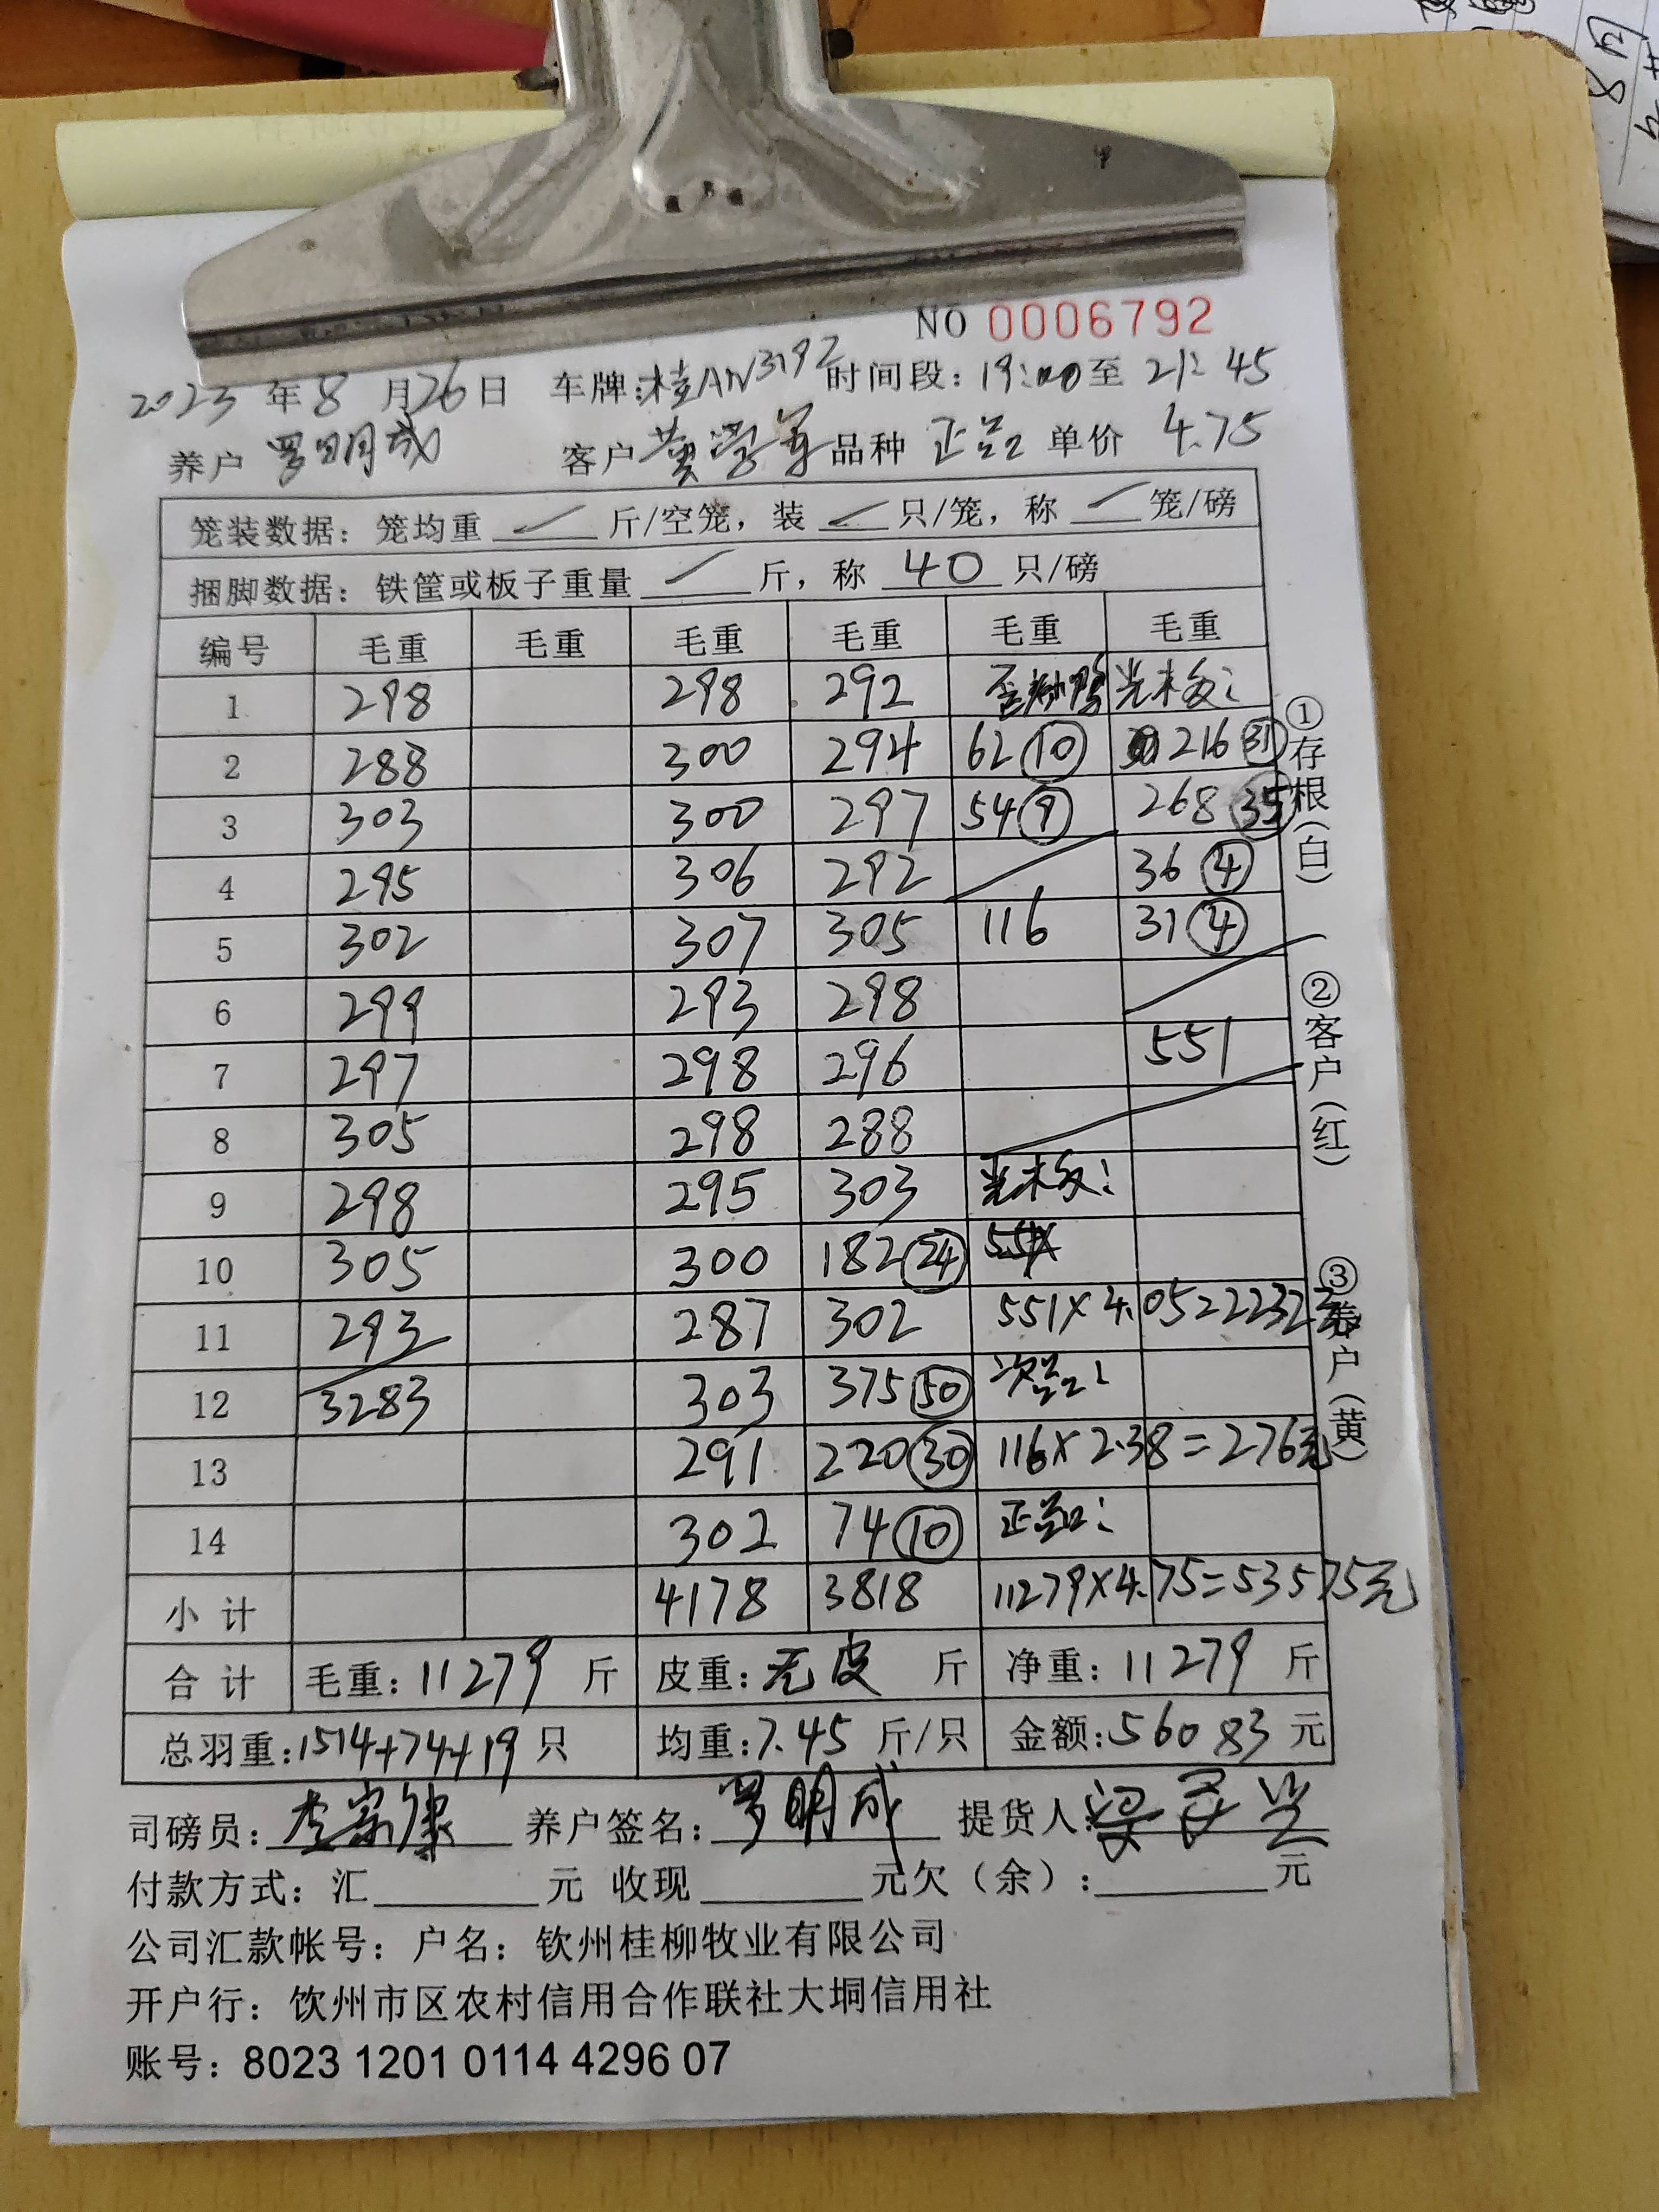 NO 0006792
2023年8月26日 车牌:桂AN3192 时间段:19:00至21:45
养户 罗明成 客户 黄学军 品种 正品 单价 4.75
笼装数据:笼均重 斤/空笼,装 只/笼,称 笼/磅
捆脚数据:铁筐或板子重量 斤,称 40 只/磅
编号 毛重 毛重 毛重 毛重 毛重 毛重
1 298 298 292
2 288 300 294 62⑩ 216㉛
3 303 300 297 54⑨ 268㉟
4 295 306 292 36④
5 302 307 305 116 31④
6 299 293 298
7 297 298 296 551
8 305 298 288
9 298 295 303
10 305 300 182㉔
11 293 287 302 551×4.05=2232元
12 3283 303 375㊿ 次品:
13 291 220㉚ 116×2.38=276元
14 302 74⑩ 正品:
小计 4178 3818 11279×4.75=53575元
合计 毛重:11279 斤 皮重:无皮 斤 净重:11279 斤
总羽重:1514+74+19 只 均重:7.45 斤/只 金额:56083 元
司磅员: 养户签名:罗明成 提货人:
付款方式:汇 元 收现 元欠(余): 元
公司汇款帐号:户名:钦州桂柳牧业有限公司
开户行:饮州市区农村信用合作联社大垌信用社
账号:8023 1201 0114 4296 07
①存根(白)
②客户(红)
③养户(黄)